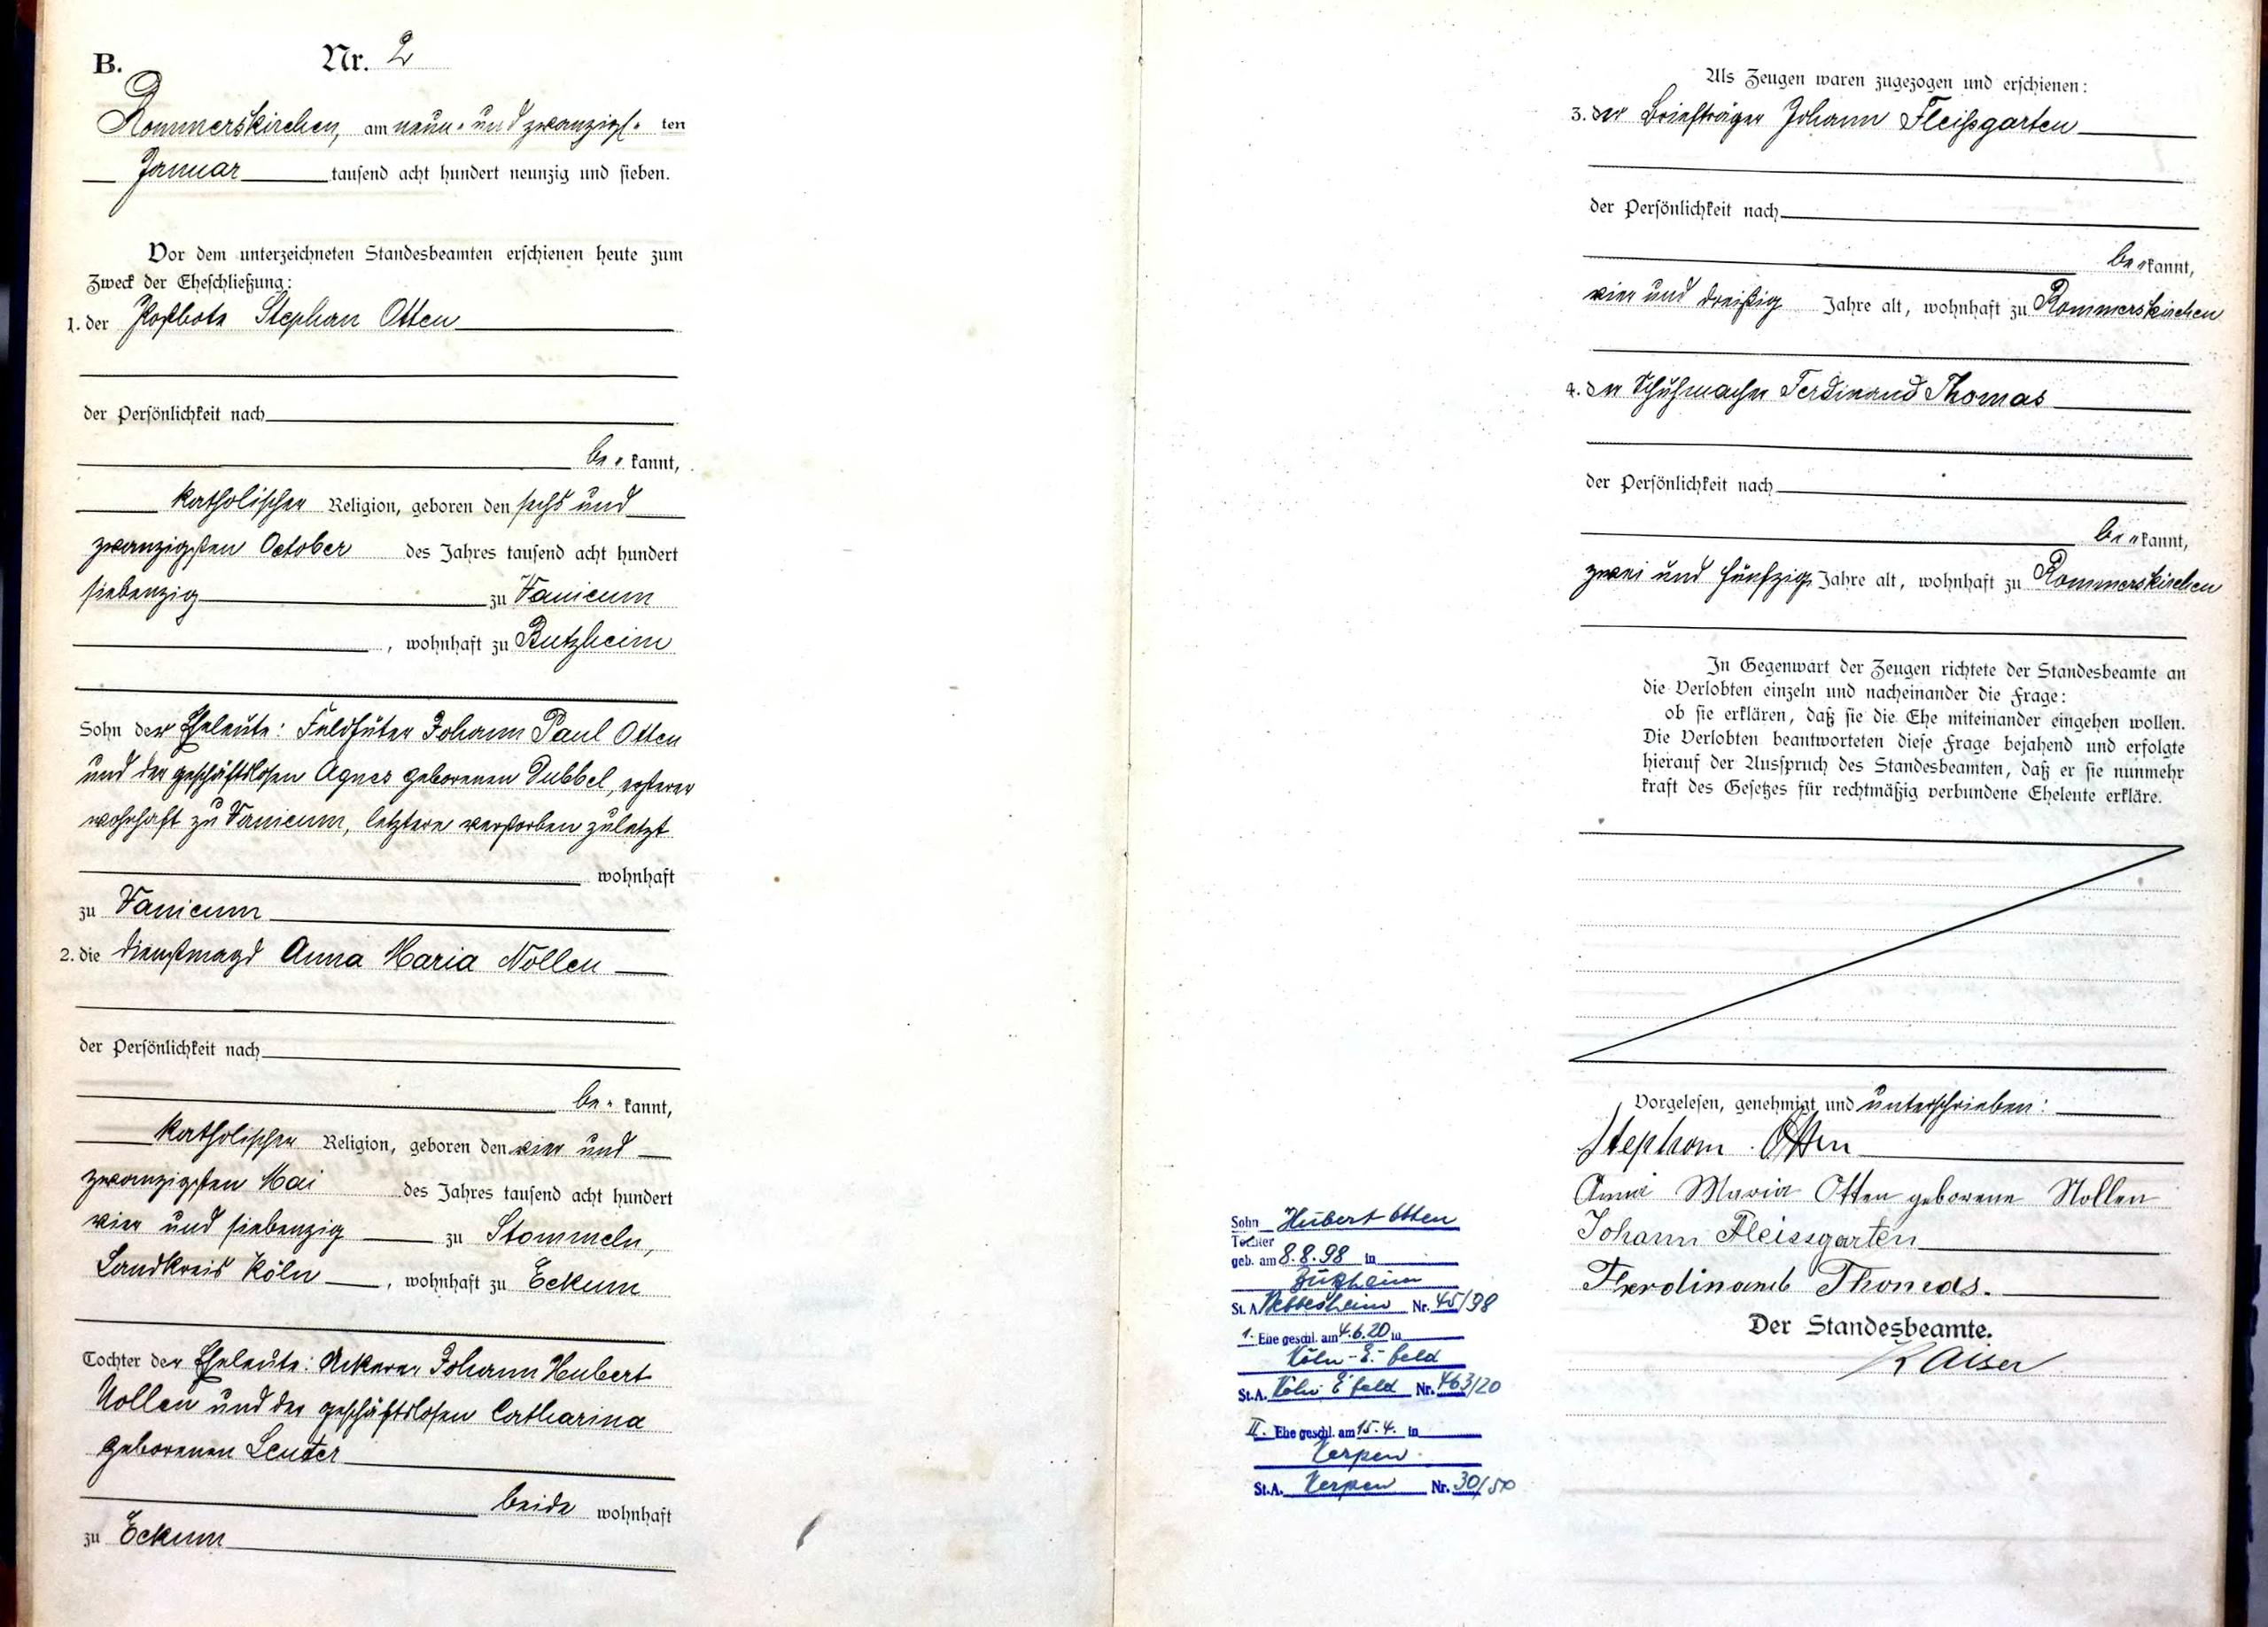 B. Nr. 2
Rommerskirchen, am neun- und zwanzigs- ten
Januar tausend acht hundert neunzig und sieben.
Vor dem unterzeichneten Standesbeamten erschienen heute zum
Zweck der Eheschließung:
1. der Postbote Stephan Otten
der Persönlichkeit nach
be- kannt,
katholischer Religion, geboren den sechs und
zwanzigsten October des Jahres tausend acht hundert
siebenzig zu Vanicum
, wohnhaft zu Butzheim
Sohn der Eheleute: Feldhüter Johann Paul Otten
und der geschäftslosen Agnes geborenen Dubbel, ersterer
wohnhaft zu Vanicum, letztere verstorben zuletzt
wohnhaft
zu Vanicum
2. die Dienstmagd Anna Maria Nollen
der Persönlichkeit nach
be- kannt,
katholischer Religion, geboren den vier und
zwanzigsten Mai des Jahres tausend acht hundert
vier und siebenzig zu Stommeln,
Landkreis Köln, wohnhaft zu Eckum
Tochter der Eheleute: Ackerer Johann Hubert
Nollen und der geschäftslosen Catharina
geborenen Leuter
beide wohnhaft
zu Eckum
Als Zeugen waren zugezogen und erschienen:
3. der Briefträger Johann Fleißgarten
der Persönlichkeit nach
be- kannt,
vier und dreißig Jahre alt, wohnhaft zu Rommerskirchen
4. der Schuhmacher Ferdinand Thomas
der Persönlichkeit nach
be- kannt,
zwei und fünfzig Jahre alt, wohnhaft zu Rommerskirchen
In Gegenwart der Zeugen richtete der Standesbeamte an
die Verlobten einzeln und nacheinander die Frage:
ob sie erklären, daß sie die Ehe miteinander eingehen wollen.
Die Verlobten beantworteten diese Frage bejahend und erfolgte
hierauf der Ausspruch des Standesbeamten, daß er sie nunmehr
kraft des Gesetzes für rechtmäßig verbundene Eheleute erkläre.
Vorgelesen, genehmigt und unterschrieben:
Stephan Otten
Anna Maria Otten geborene Nollen
Johann Fleissgarten
Ferdinand Thomas.
Der Standesbeamte.
Kaiser
Sohn Hubert Otten
Tochter
geb. am 8.8.98 in
Butzheim
St. A. Nettesheim Nr. 45/98
1. Ehe geschl. am 4.6.20 in
Köln-E.-feld
St.A. Köln E'feld Nr. 463/20
II. Ehe geschl. am 15.4. in
Kerpen
St.A. Kerpen Nr. 30/50